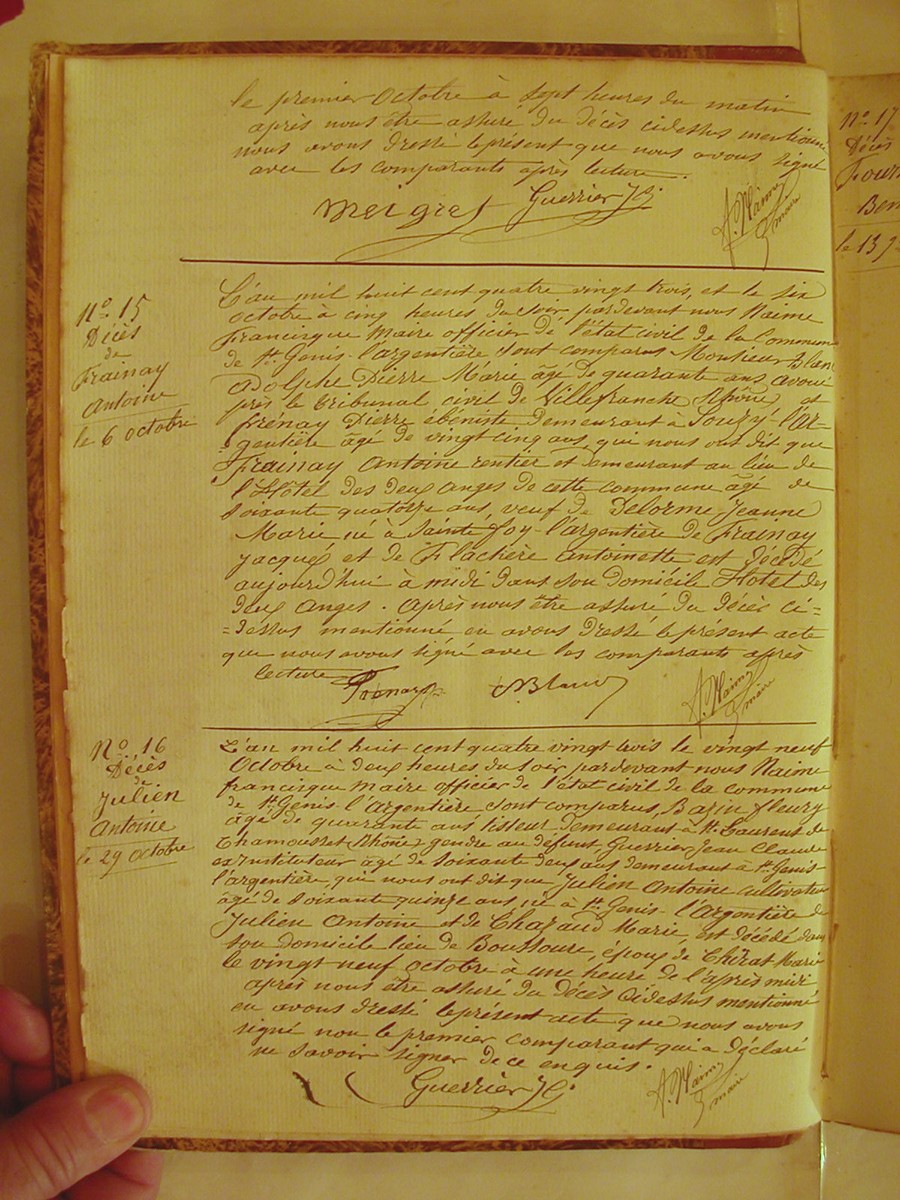 le premier Octobre à sept heures du matin
après nous être assuré du décès cidessus mentionné
nous avons dressé leprésent que nous avons signé
avec les comparants après lecture.
Meigret Guerrier JC.
F. Naime
maire
No. 15
Décès
de
Frainay
Antoine
le 6 octobre
L'an mil huit cent quatre vingt trois, et le six
Octobre à cinq heures du soir pardevant nous Naime
Francisque Maire officier de l'état civil de la Commune
de St. Genis-l'argentière sont comparus Monsieur Blanc
Adolphe Pierre Marie âgé de quarante ans avoué
près le tribunal civil de Villefranche (Rhône) et
frénay Pierre ébéniste demeurant à Souzy-l'ar-
gentière âgé de vingt cinq ans, qui nous ont dit que
Frainay Antoine rentier et demeurant au lieu de
l'Hôtel des deux anges de cette commune âgé de
soixante quatorze ans, veuf de Delorme Jeanne
Marie, né à Sainte foy-l'argentière de Frainay
Jacques et de Flachère antoinette est décédé
aujourd'hui à midi dans son domicile Hotel des
deux anges. Après nous être assuré du décès ci=
=dessus mentionné en avons dressé leprésent acte
que nous avons signé avec les comparants après
lecture
Frénay P. Blanc
F. Naime
maire
No. 16
Décès
de
Julien
Antoine
le 29 octobre
L'an mil huit cent quatre vingt trois le vingt neuf
Octobre à deux heures du soir pardevant nous Naime
francisque maire officier de l'état civil de la commune
de St. Genis-l'Argentière sont comparus, Bazin fleury
âgé de quarante ans tisseur demeurant à St. Laurent de
Chamousset (Rhône) gendre au défunt Guerrier Jean Claude
ex instituteur âgé de soixante deux ans demeurant à St. Genis-
l'argentière, qui nous ont dit que Julien Antoine cultivateur
âgé de soixante quinze ans, né à St. Genis-l'Argentière de
Julien Antoine et de Chazaud Marie, est décédé dans
son domicile lieu de Boussoure, époux de Chirat Marie
le vingt neuf octobre à une heure de l'après midi
après nous être assuré du décès cidessus mentionné
en avons dressé leprésent acte que nous avons
signé non le premier comparant qui a déclaré
ne savoir signer de ce enquis.
Guerrier JC.
F. Naime
maire
No. 17
Décès
Fourn
Ben
le 13